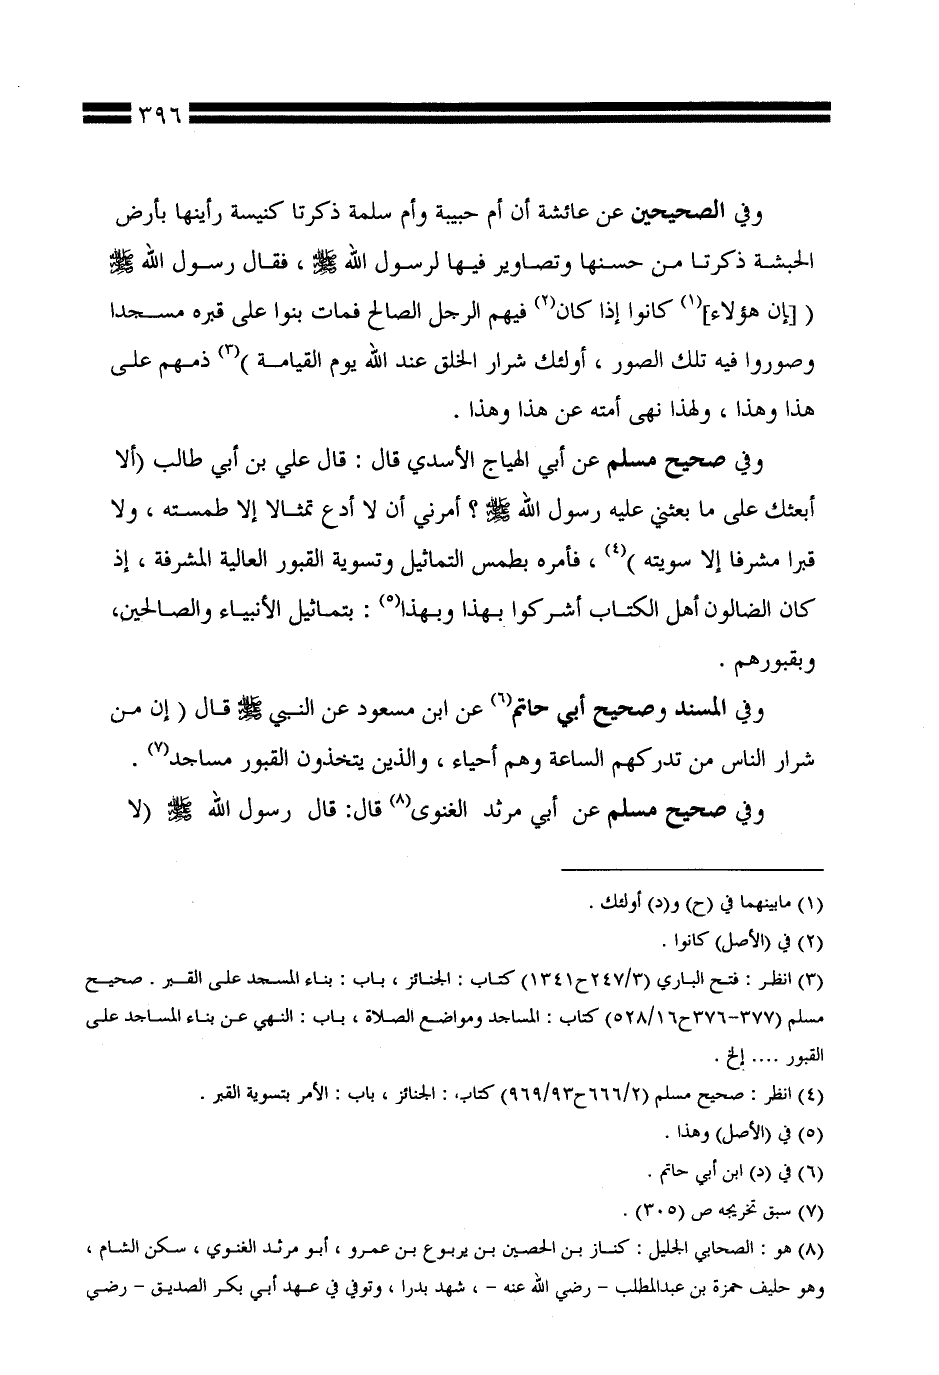 ٣٩٦
وفي الصحيحين عن عائشة أن أم حبيبة وأم سلمة ذكرتا كنيسة رأينها بأرض
الحبشة ذكرتا من حسنها وتصاوير فيها لرسول الله ﷺ ، فقال رسول الله ﷺ
( [إن هؤلاء](١) كانوا إذا كان(٢) فيهم الرجل الصالح فمات بنوا على قبره مسجدا
وصوروا فيه تلك الصور ، أولئك شرار الخلق عند الله يوم القيامة )(٣) ذمهم على
هذا وهذا ، ولهذا نهى أمته عن هذا وهذا .
وفي صحيح مسلم عن أبي الهياج الأسدي قال : قال علي بن أبي طالب (ألا
أبعثك على ما بعثني عليه رسول الله ﷺ ؟ أمرني أن لا أدع تمثالا إلا طمسته ، ولا
قبرا مشرفا إلا سويته )(٤) ، فأمره بطمس التماثيل وتسوية القبور العالية المشرفة ، إذ
كان الضالون أهل الكتاب أشركوا بهذا وبهذا(٥) : بتماثيل الأنبياء والصالحين،
وبقبورهم .
وفي المسند وصحيح أبي حاتم(٦) عن ابن مسعود عن النبي ﷺ قال ( إن من
شرار الناس من تدركهم الساعة وهم أحياء ، والذين يتخذون القبور مساجد(٧) .
وفي صحيح مسلم عن أبي مرثد الغنوى(٨) قال: قال رسول الله ﷺ (لا
(١) مابينهما في (ح) و(د) أولئك .
(٢) في (الأصل) كانوا .
(٣) انظر : فتح الباري (٢٤٧/٣ح١٣٤١) كتاب : الجنائز ، باب : بناء المسجد على القبر . صحيح
مسلم (٣٧٧-٣٧٦ح٥٢٨/١٦) كتاب : المساجد ومواضع الصلاة ، باب : النهي عن بناء المساجد على
القبور .... إلخ .
(٤) انظر : صحيح مسلم (٦٦٦/٢ح٩٦٩/٩٣) كتاب، : الجنائز ، باب : الأمر بتسوية القبر .
(٥) في (الأصل) وهذا .
(٦) في (د) ابن أبي حاتم .
(٧) سبق تخريجه ص (٣٠٥) .
(٨) هو : الصحابي الجليل : كناز بن الحصين بن يربوع بن عمرو ، أبو مرثد الغنوي ، سكن الشام ،
وهو حليف حمزة بن عبدالمطلب – رضي الله عنه – ، شهد بدرا ، وتوفي في عهد أبي بكر الصديق – رضي